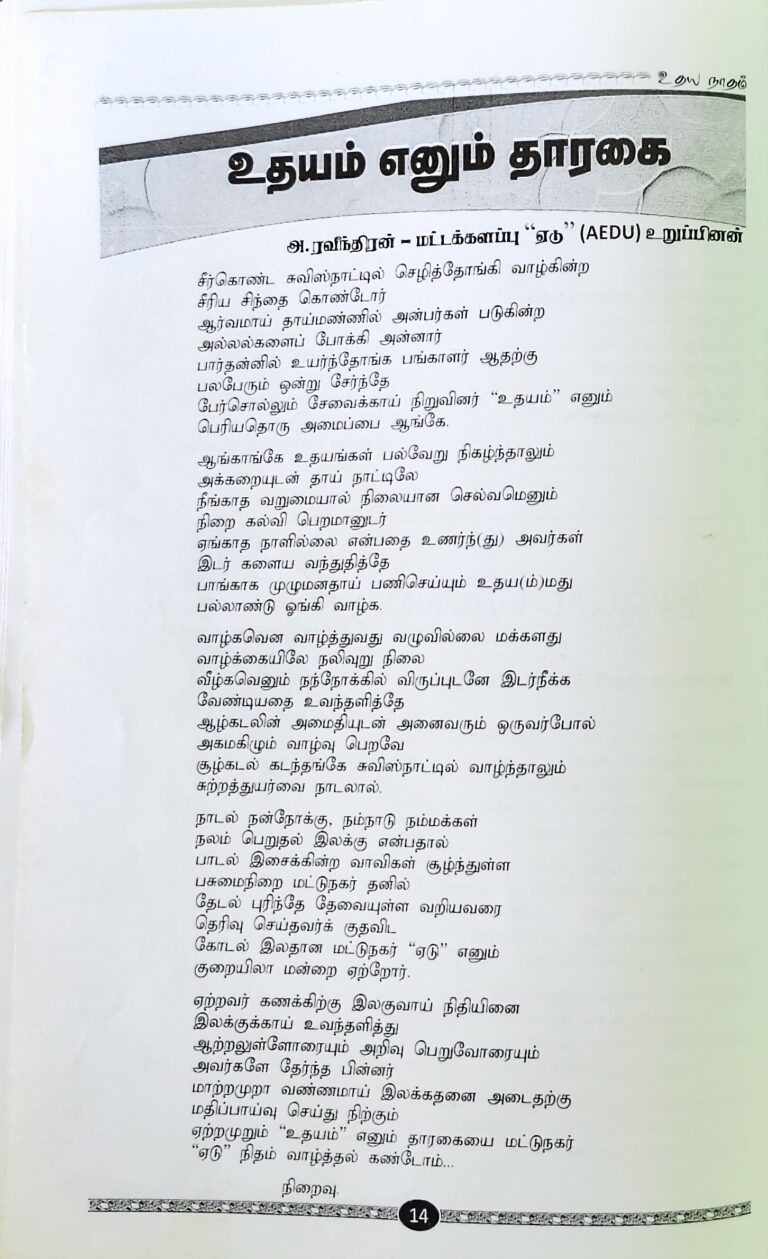 உதய நாதம்
உதயம் எனும் தாரகை
அ. ரவீந்திரன் – மட்டக்களப்பு “ஏடு” (AEDU) உறுப்பினன்
சீர்கொண்ட சுவிஸ்நாட்டில் செழித்தோங்கி வாழ்கின்ற
சீரிய சிந்தை கொண்டோர்
ஆர்வமாய் தாய்மண்ணில் அன்பர்கள் படுகின்ற
அல்லல்களைப் போக்கி அன்னார்
பார்தன்னில் உயர்ந்தோங்க பங்காளர் ஆதற்கு
பலபேரும் ஒன்று சேர்ந்தே
பேர்சொல்லும் சேவைக்காய் நிறுவினர் “உதயம்” எனும்
பெரியதொரு அமைப்பை ஆங்கே.
ஆங்காங்கே உதயங்கள் பல்வேறு நிகழ்ந்தாலும்
அக்கறையுடன் தாய் நாட்டிலே
நீங்காத வறுமையால் நிலையான செல்வமெனும்
நிறை கல்வி பெறமானுடர்
ஏங்காத நாளில்லை என்பதை உணர்ந்(து) அவர்கள்
இடர் களைய வந்துதித்தே
பாங்காக முழுமனதாய் பணிசெய்யும் உதய(ம்)மது
பல்லாண்டு ஓங்கி வாழ்க.
வாழ்கவென வாழ்த்துவது வழுவில்லை மக்களது
வாழ்க்கையிலே நலிவுறு நிலை
வீழ்கவெனும் நந்நோக்கில் விருப்புடனே இடர்நீக்க
வேண்டியதை உவந்தளித்தே
ஆழ்கடலின் அமைதியுடன் அனைவரும் ஒருவர்போல்
அகமகிழும் வாழ்வு பெறவே
சூழ்கடல் கடந்தங்கே சுவிஸ்நாட்டில் வாழ்ந்தாலும்
சுற்றத்துயர்வை நாடலால்.
நாடல் நன்நோக்கு, நம்நாடு நம்மக்கள்
நலம் பெறுதல் இலக்கு என்பதால்
பாடல் இசைக்கின்ற வாவிகள் சூழ்ந்துள்ள
பசுமைநிறை மட்டுநகர் தனில்
தேடல் புரிந்தே தேவையுள்ள வறியவரை
தெரிவு செய்தவர்க் குதவிட
கோடல் இலதான மட்டுநகர் “ஏடு” எனும்
குறையிலா மன்றை ஏற்றோர்.
ஏற்றவர் கணக்கிற்கு இலகுவாய் நிதியினை
இலக்குக்காய் உவந்தளித்து
ஆற்றலுள்ளோரையும் அறிவு பெறுவோரையும்
அவர்களே தேர்ந்த பின்னர்
மாற்றமுறா வண்ணமாய் இலக்கதனை அடைதற்கு
மதிப்பாய்வு செய்து நிற்கும்
ஏற்றமுறும் “உதயம்” எனும் தாரகையை மட்டுநகர்
“ஏடு” நிதம் வாழ்த்தல் கண்டோம்...
நிறைவு.
14